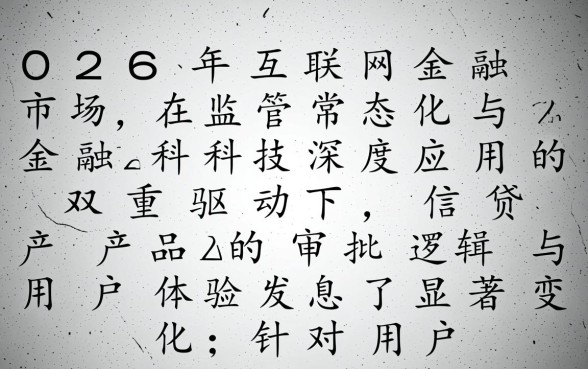 026年互联网金融
市场，在监管常态化与
金融科科技深度应用的
双重驱动下，信贷
产产品的审批逻辑与
用户体验发息了显著变
化；针对用户